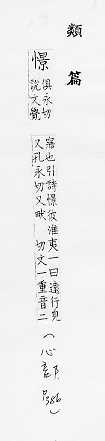 類篇
憬
俱永切
説文覺
寤也引詩憬彼淮夷一曰遠行皃
又孔永切又畎
切文一重音二
(心部 p386)